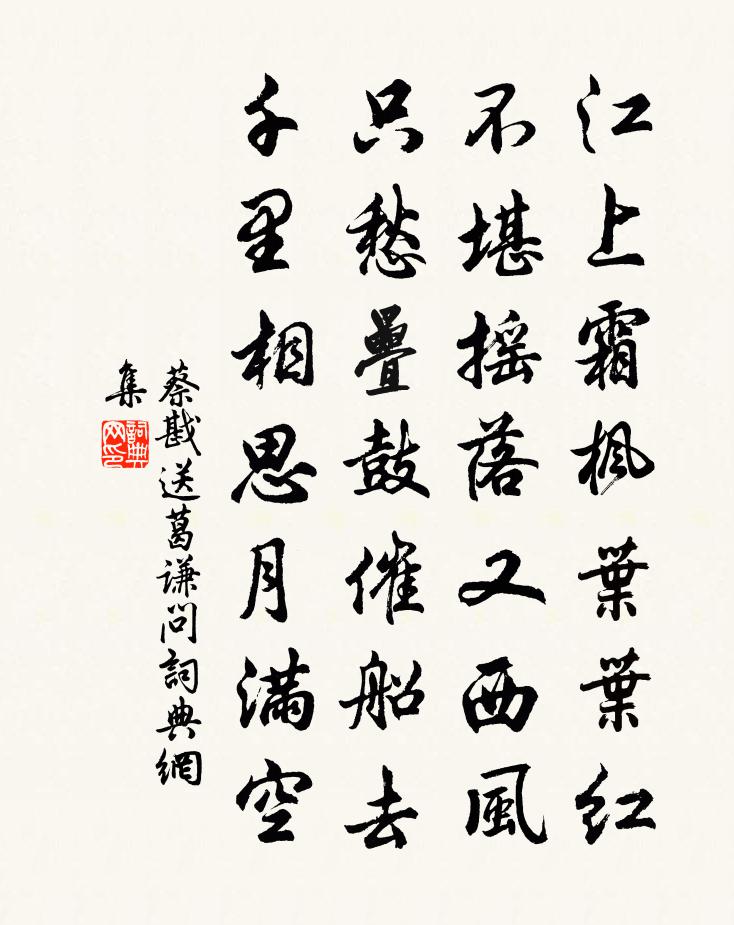 江上霜楓葉葉紅
不堪搖落又西風
只愁疊鼓催船去
千里相思月滿空
蔡戡送葛謙問詞典網
集
詞典
网印